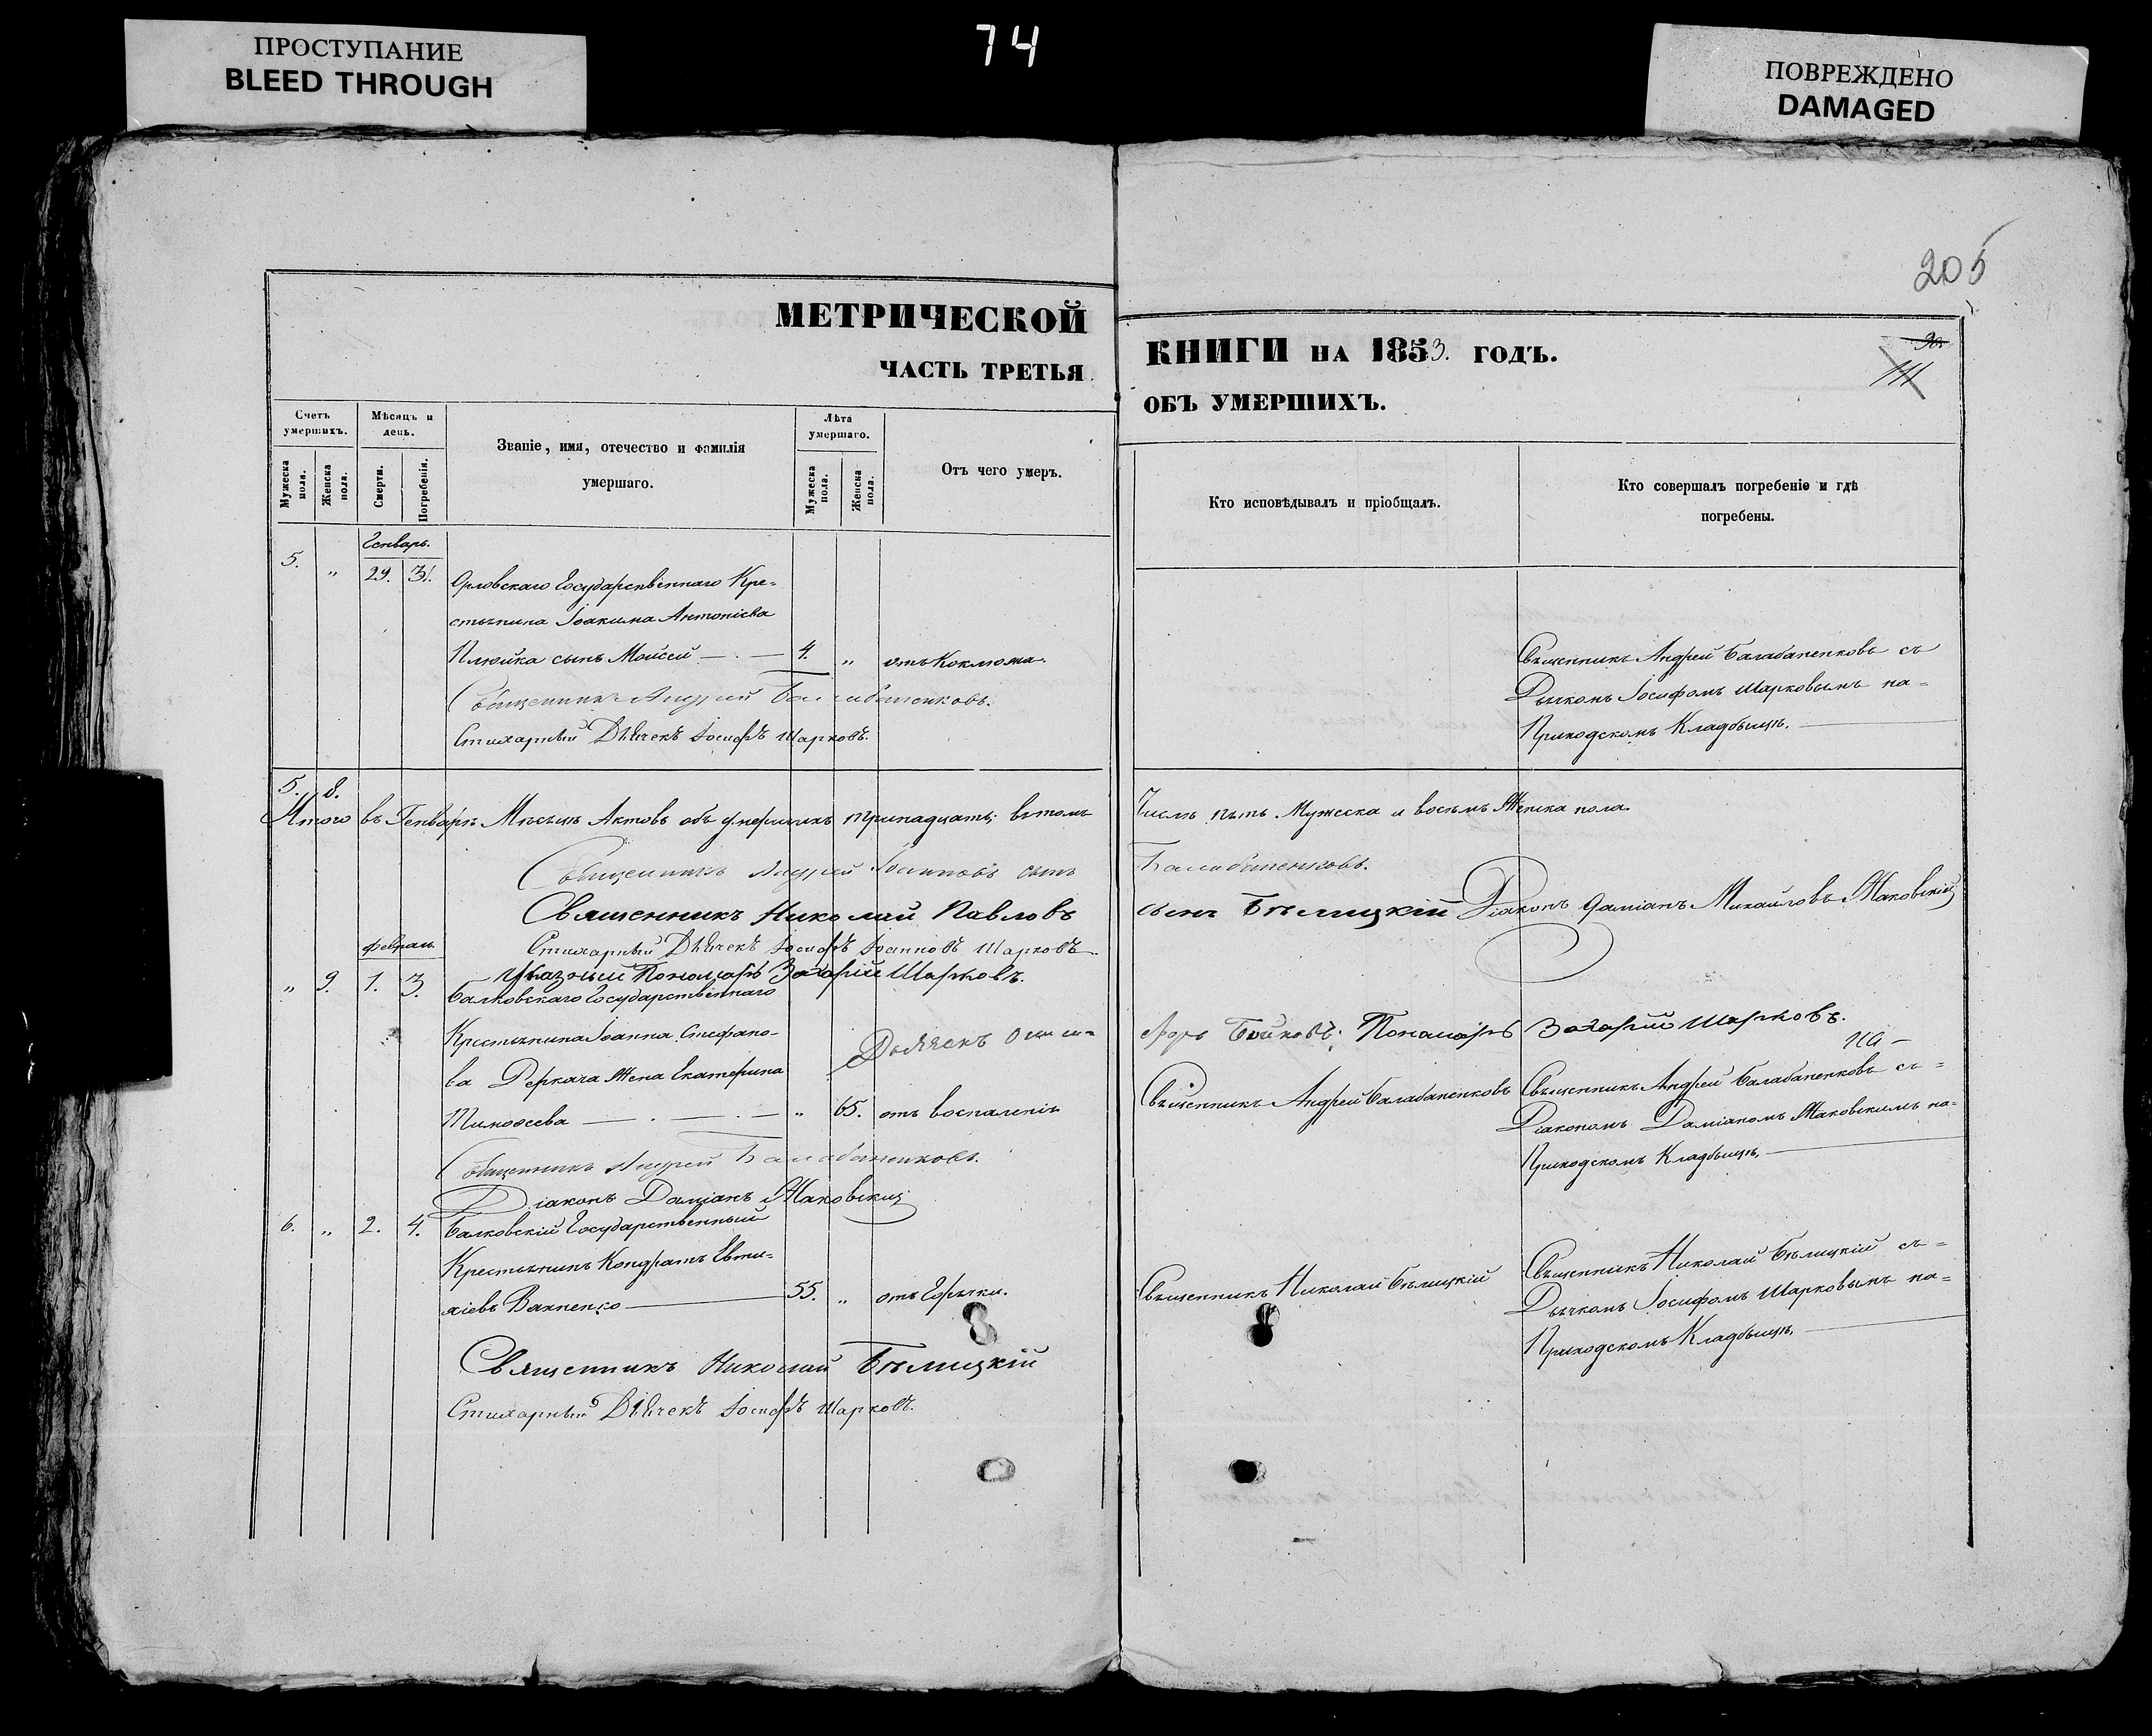 ПРОСТУПАНИЕ
BLEED THROUGH
74
ПОВРЕЖДЕНО
DAMAGED
205
МЕТРИЧЕСКОЙ
ЧАСТЬ ТРЕТЬЯ
КНИГИ НА 1853. ГОДЪ.
ОБЪ УМЕРШИХЪ.
111
Счетъ умершихъ.
Мужеска пола.
Женска пола.
Мѣсяцъ и день.
Смерти.
Погребенія.
Званіе, имя, отечество и фамилія
умершаго.
Лѣта умершаго.
Мужеска пола.
Женска пола.
Отъ чего умеръ.
Кто исповѣдывалъ и пріобщалъ.
Кто совершалъ погребеніе и гдѣ
погребены.
Генварь.
5. „ 29. 31. Орловскаго Государственнаго Кре=
стьянина Іоакима Антоніева
Плюйка сынъ Моисей 4. „ отъ Коклюша.
Священникъ Андрей Балабаненковъ съ
Дьячкомъ Іосифомъ Шарковымъ на=
Приходскомъ Кладбищѣ.
Священникъ Андрей Балабаненковъ.
Стихарный Дьячекъ Іосифъ Шарковъ.
5. 8.
Итого въ Генварѣ Мѣсяцѣ Актовъ объ умершихъ тринадцать; втомъ
Числѣ пять Мужеска и восемь Женска пола.
Священникъ Андрей Іоанновъ сынъ
Балабаненковъ.
Священникъ Николай Павловъ
сынъ Бѣлицкій Діаконъ Даміанъ Михайловъ Маковскій
Стихарный Дьячекъ Іосифъ Іоанновъ Шарковъ.
Указный Пономарь Захарій Шарковъ.
Бойковъ; Пономарь Захарій Шарковъ.
Февраль
„ 9. 1. 3. Балковскаго Государственнаго
Крестьянина Іоанна Стефано-
ва Деркача Жена Екатерина
Тимофеева „ 65. отъ воспаленія
Священникъ Андрей Балабаненковъ
Священникъ Андрей Балабаненковъ съ=
Діакономъ Даміаномъ Маковскимъ на=
Приходскомъ Кладбищѣ.
Священникъ Андрей Балабаненковъ.
Діаконъ Даміанъ Маковскій
6. „ 2. 4. Балковскій Государственный
Крестьянинъ Кондратъ Евти=
хіевъ Вакненко 55. „ отъ Горячки.
Священникъ Николай Бѣлицкій
Священникъ Николай Бѣлицкій съ=
Дьячкомъ Іосифомъ Шарковымъ на=
Приходскомъ Кладбищѣ.
Священникъ Николай Бѣлицкій
Стихарный Дьячекъ Іосифъ Шарковъ.